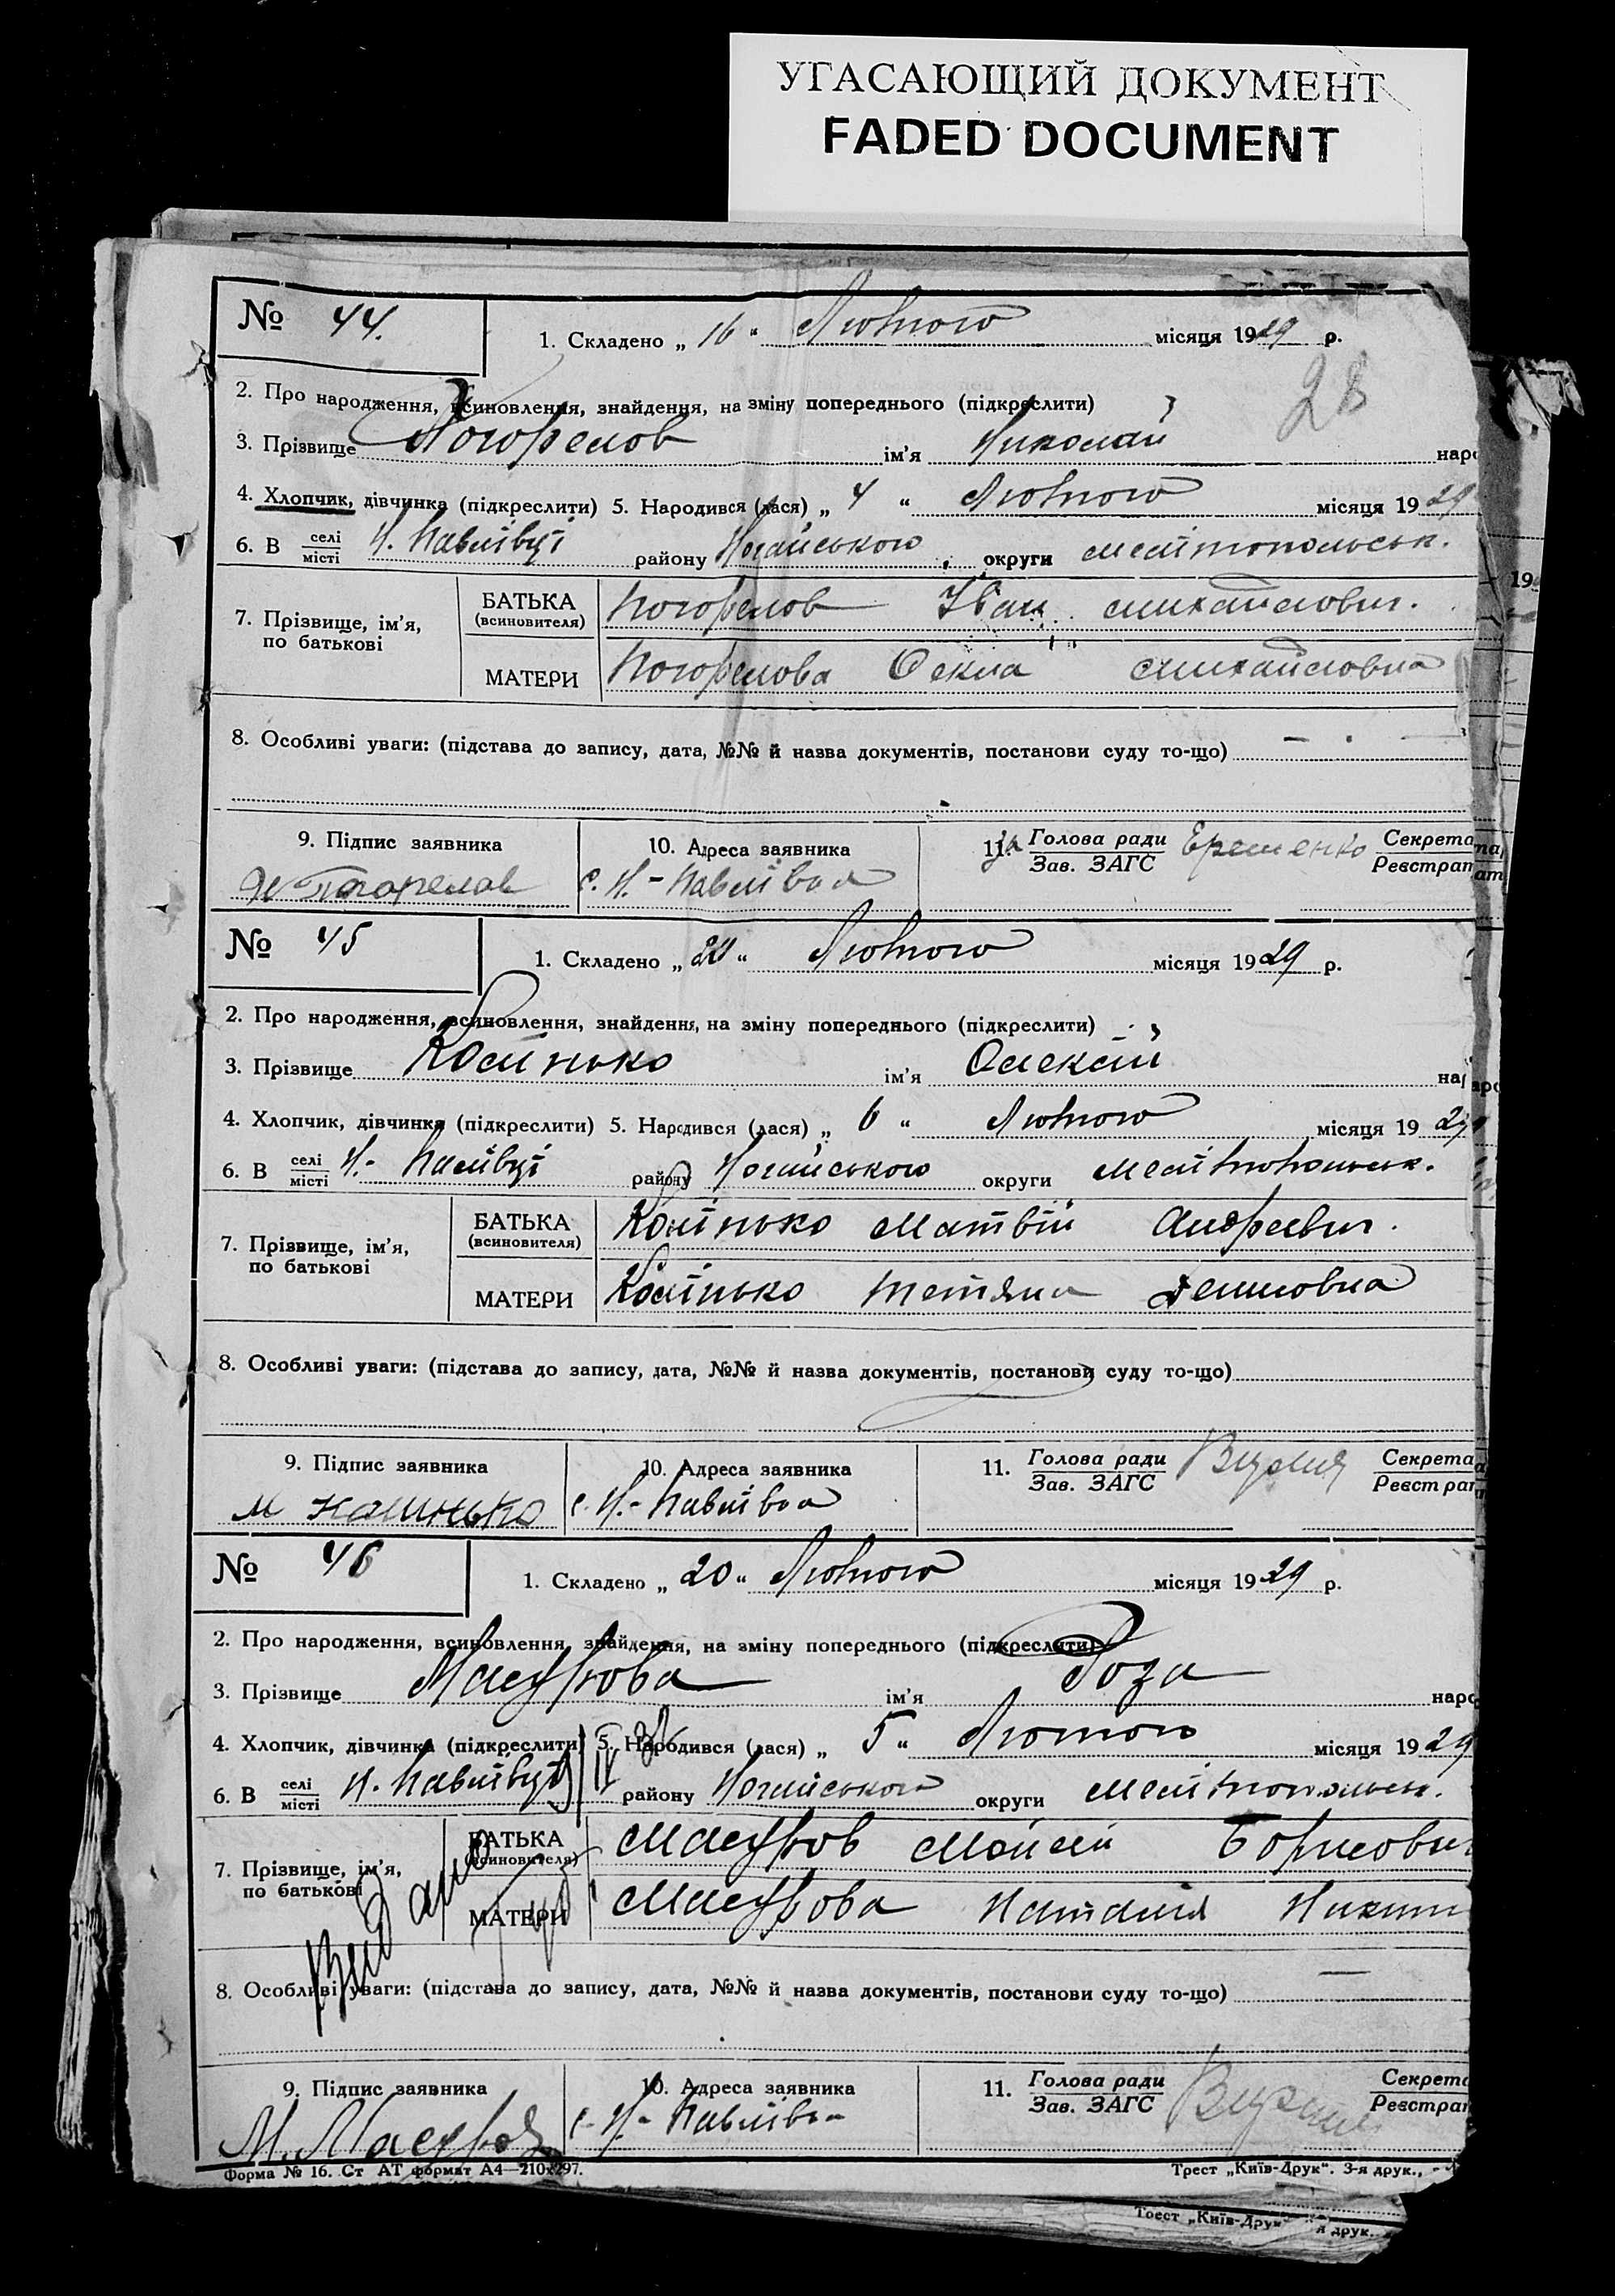 УГАСАЮЩИЙ ДОКУМЕНТ
FADED DOCUMENT
№ 44.
1. Складено „ 16 “ Лютого місяця 1929 р.
28
2. Про народження, всиновлення, знайдення, на зміну попереднього (підкреслити)
3. Прізвище Погорелов ім'я Николай
4. Хлопчик, дівчинка (підкреслити) 5. Народився (лася) „ 4 “ Лютого місяця 1929
6. В селі місті Н. Павлівці району Ногайського округи Мелітопольськ.
7. Прізвище, ім'я, по батькові
БАТЬКА (всиновителя) Погорелов Іван Михайлович.
МАТЕРИ Погорелова Фекла Михайловна
8. Особливі уваги: (підстава до запису, дата, №№ й назва документів, постанови суду то-що)
9. Підпис заявника 10. Адреса заявника 11. Голова ради Зав. ЗАГС Еременко Секрета Реєстрат
Погорелов с. Н.-Павлівка
№ 45
1. Складено „ 20 “ Лютого місяця 1929 р.
2. Про народження, всиновлення, знайдення, на зміну попереднього (підкреслити)
3. Прізвище Калінько ім'я Олексій
4. Хлопчик, дівчинка (підкреслити) 5. Народився (лася) „ 6 “ Лютого місяця 1929
6. В селі місті Н.- Павлівці району Ногайського округи Мелітопольськ.
7. Прізвище, ім'я, по батькові
БАТЬКА (всиновителя) Калінько Матвій Андреевич.
МАТЕРИ Калінько Тетяна
8. Особливі уваги: (підстава до запису, дата, №№ й назва документів, постанови суду то-що)
9. Підпис заявника 10. Адреса заявника 11. Голова ради Зав. ЗАГС Секрета Реєстрат
М Калинько с. Н.-Павлівка
№ 46
1. Складено „ 20 “ Лютого місяця 1929 р.
2. Про народження, всиновлення, знайдення, на зміну попереднього (підкреслити)
3. Прізвище ім'я Роза
4. Хлопчик, дівчинка (підкреслити) 5. Народився (лася) „ 5 “ Лютого місяця 1929
6. В селі місті Н. Павлівці району Ногайського округи Мелітопольськ.
7. Прізвище, ім'я, по батькові
БАТЬКА (всиновителя) Мойсей Борисович
МАТЕРИ Наталія Никит
Видано
8. Особливі уваги: (підстава до запису, дата, №№ й назва документів, постанови суду то-що)
9. Підпис заявника 10. Адреса заявника 11. Голова ради Зав. ЗАГС Секрета Реєстрат
с. Н.- Павлівка
Форма № 16. Ст АТ формат А4—210х297.
Трест „Київ-Друк“. 3-я друк.,
Трест „Київ-Друк“